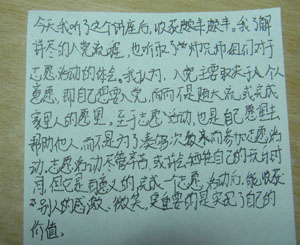 今天我听了这个讲座后,收获颇丰颇丰。我了解
详尽的入党流程,也听取了学姐兄师姐们对于
志愿活动的体会。我认为,入党主要取决于个人
意愿,即自己想要入党,而不是随大流,或完成
家里人的愿望。至于志愿活动,也是自己愿望去
帮助他人,而不是为了综测次数来而参加志愿活
动,志愿活动尽管辛苦,或许会牺牲自己的玩乐时
间,但它是有意义的,完成一个志愿活动后,能收获
别人的感激、微笑,更重要的是实现了自己的
价值。